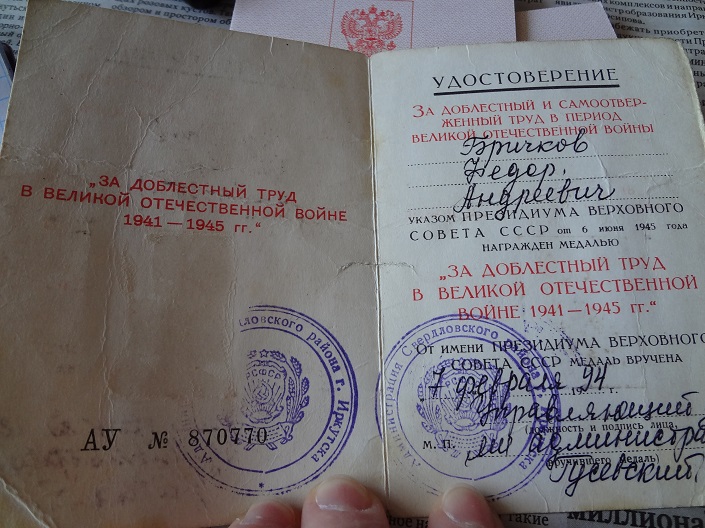 „ЗА ДОБЛЕСТНЫЙ ТРУД
В ВЕЛИКОЙ ОТЕЧЕСТВЕННОЙ ВОЙНЕ
1941—1945 гг.“
ловского района г. Иркутска
РСФСР
АУ № 870770
УДОСТОВЕРЕНИЕ
ЗА ДОБЛЕСТНЫЙ И САМООТВЕР-
ЖЕННЫЙ ТРУД В ПЕРИОД
ВЕЛИКОЙ ОТЕЧЕСТВЕННОЙ ВОЙНЫ
Бричков
Федор
Андреевич
УКАЗОМ ПРЕЗИДИУМА ВЕРХОВНОГО
СОВЕТА СССР от 6 июня 1945 года
НАГРАЖДЕН МЕДАЛЬЮ
„ЗА ДОБЛЕСТНЫЙ ТРУД
В ВЕЛИКОЙ ОТЕЧЕСТВЕННОЙ
ВОЙНЕ 1941—1945 гг.“
От имени ПРЕЗИДИУМА ВЕРХОВНОГО
СОВЕТА СССР МЕДАЛЬ ВРУЧЕНА
7 февраля 94 г.
Управляющий
(должность и подпись лица,
М. П.
администра
вручившего медаль)
Гусевский
Администрация Свердловского района г.
миллиона